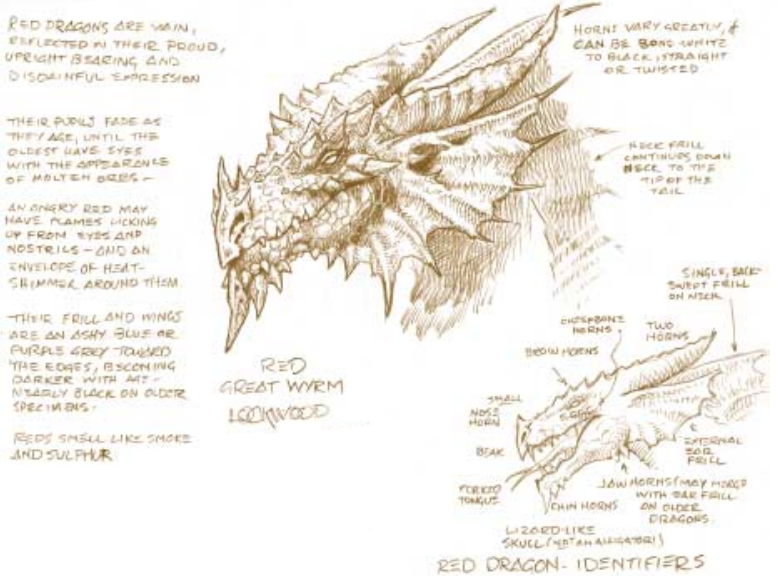 RED DRAGONS ARE VAIN,
REFLECTED IN THEIR PROUD,
UPRIGHT BEARING AND
DISDAINFUL EXPRESSION
THEIR PUPILS FADE AS
THEY AGE, UNTIL THE
OLDEST HAVE EYES
WITH THE APPEARANCE
OF MOLTEN ORBS -
AN ANGRY RED MAY
HAVE FLAMES LICKING
UP FROM EYES AND
NOSTRILS - AND AN
ENVELOPE OF HEAT-
SHIMMER AROUND THEM.
THEIR FRILL AND WINGS
ARE AN ASHY BLUE OR
PURPLE GREY TOWARD
THE EDGES, BECOMING
DARKER WITH AGE -
NEARLY BLACK ON OLDER
SPECIMENS.
REDS SMELL LIKE SMOKE
AND SULPHUR
RED
GREAT WYRM
LOCKWOOD
HORNS VARY GREATLY, &
CAN BE BONE WHITE
TO BLACK, STRAIGHT
OR TWISTED
NECK FRILL
CONTINUES DOWN
NECK TO THE
TIP OF THE
TAIL
SINGLE, BACK-
SWEPT FRILL
ON NECK
CHEEKBONE
HORNS
TWO
HORNS
BROW HORNS
SMALL
NOSE
HORN
BEAK
FORKED
TONGUE
CHIN HORNS
EXTERNAL
EAR
FRILL
JAW HORNS (MAY MERGE
WITH EAR FRILL
ON OLDER
DRAGONS.
LIZARD-LIKE
SKULL (NOT AN ALLIGATOR!)
RED DRAGON - IDENTIFIERS